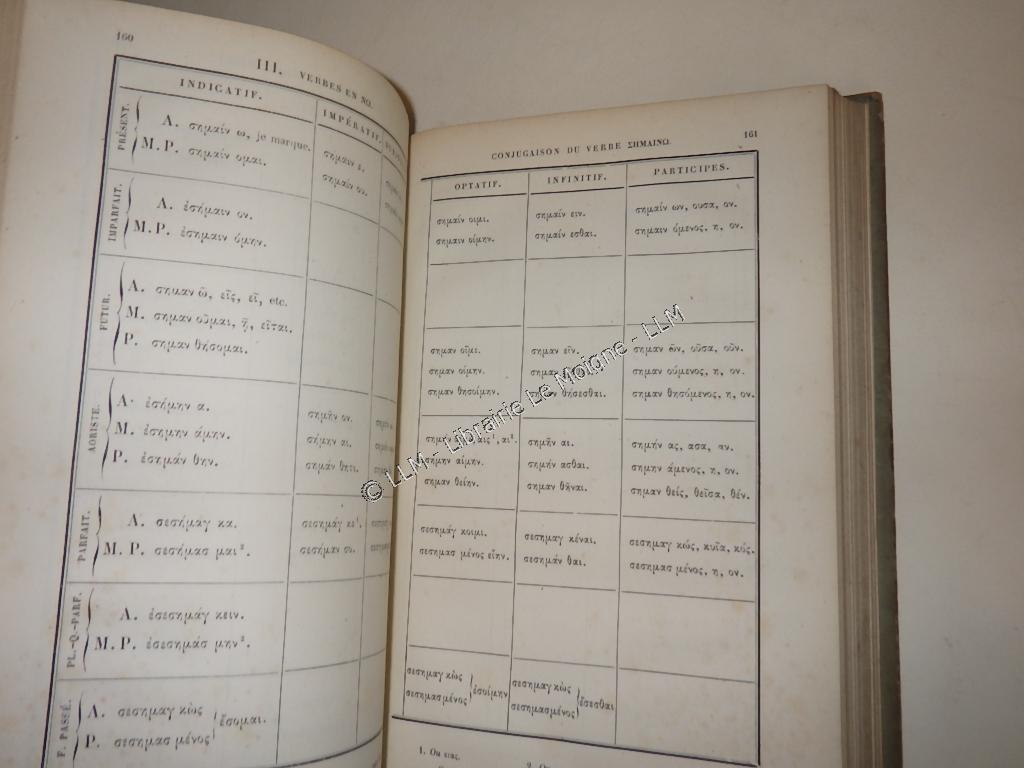 160
III. VERBES EN ΝΩ.
INDICATIF.
IMPÉRATIF.
PRÉSENT.
A. σημαίν ω, je marque.
M.P. σημαίν ομαι.
σημαιν ε.
σημαίν ου.
IMPARFAIT.
A. ἐσήμαιν ον.
M.P. ἐσημαιν όμην.
FUTUR.
A. σημαν ῶ, εῖς, εῖ, etc.
M. σημαν οῦμαι, ῇ, εῖται.
P. σημαν θήσομαι.
AORISTE.
A. ἐσήμην α.
M. ἐσημην άμην.
P. ἐσημάν θην.
σημῆν ον.
σήμην αι.
σημάν θητι.
PARFAIT.
A. σεσήμαγ κα.
M.P. σεσήμασ μαι².
σεσήμαγ κε¹.
σεσήμαν σο.
PL.-Q.-PARF.
A. ἐσεσημάγ κειν.
M.P. ἐσεσημάσ μην².
F. PASSÉ.
A. σεσημαγ κὼς
P. σεσημασ μένος
ἔσομαι.
161
CONJUGAISON DU VERBE ΣΗΜΑΙΝΩ.
OPTATIF.
INFINITIF.
PARTICIPES.
σημαίν οιμι.
σημαιν οίμην.
σημαίν ειν.
σημαίν εσθαι.
σημαίν ων, ουσα, ον.
σημαιν όμενος, η, ον.
σημαν οῖμι.
σημαν οίμην.
σημαν θησοίμην.
σημαν εῖν.
σημαν
θήσεσθαι.
σημαν ῶν, οῦσα, οῦν.
σημαν ούμενος, η, ον.
σημαν θησόμενος, η, ον.
σημήν
αις¹, αι².
σημην αίμην.
σημαν θείην.
σημῆν αι.
σημήν ασθαι.
σημαν θῆναι.
σημήν ας, ασα, αν.
σημην άμενος, η, ον.
σημαν θείς, θεῖσα, θέν.
σεσημάγ κοιμι.
σεσημασ μένος εἴην.
σεσημαγ κέναι.
σεσημάν θαι.
σεσημαγ κώς, κυῖα, κός.
σεσημασ μένος, η, ον.
σεσημαγ κὼς
σεσημασμένος
ἐσοίμην
σεσημαγ κὼς
σεσημασμένος
ἔσεσθαι.
1. Ou ειας.
© LLM - Librairie Le Moigne - LLM